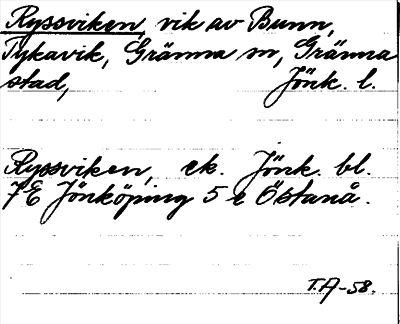 Ryssviken, vik av Bunn,
Tykavik, Gränna sn, Gränna
stad, Jönk. l.
Ryssviken, ek. Jönk. bl.
7E Jönköping 5 e Östanå.
T.A-58.